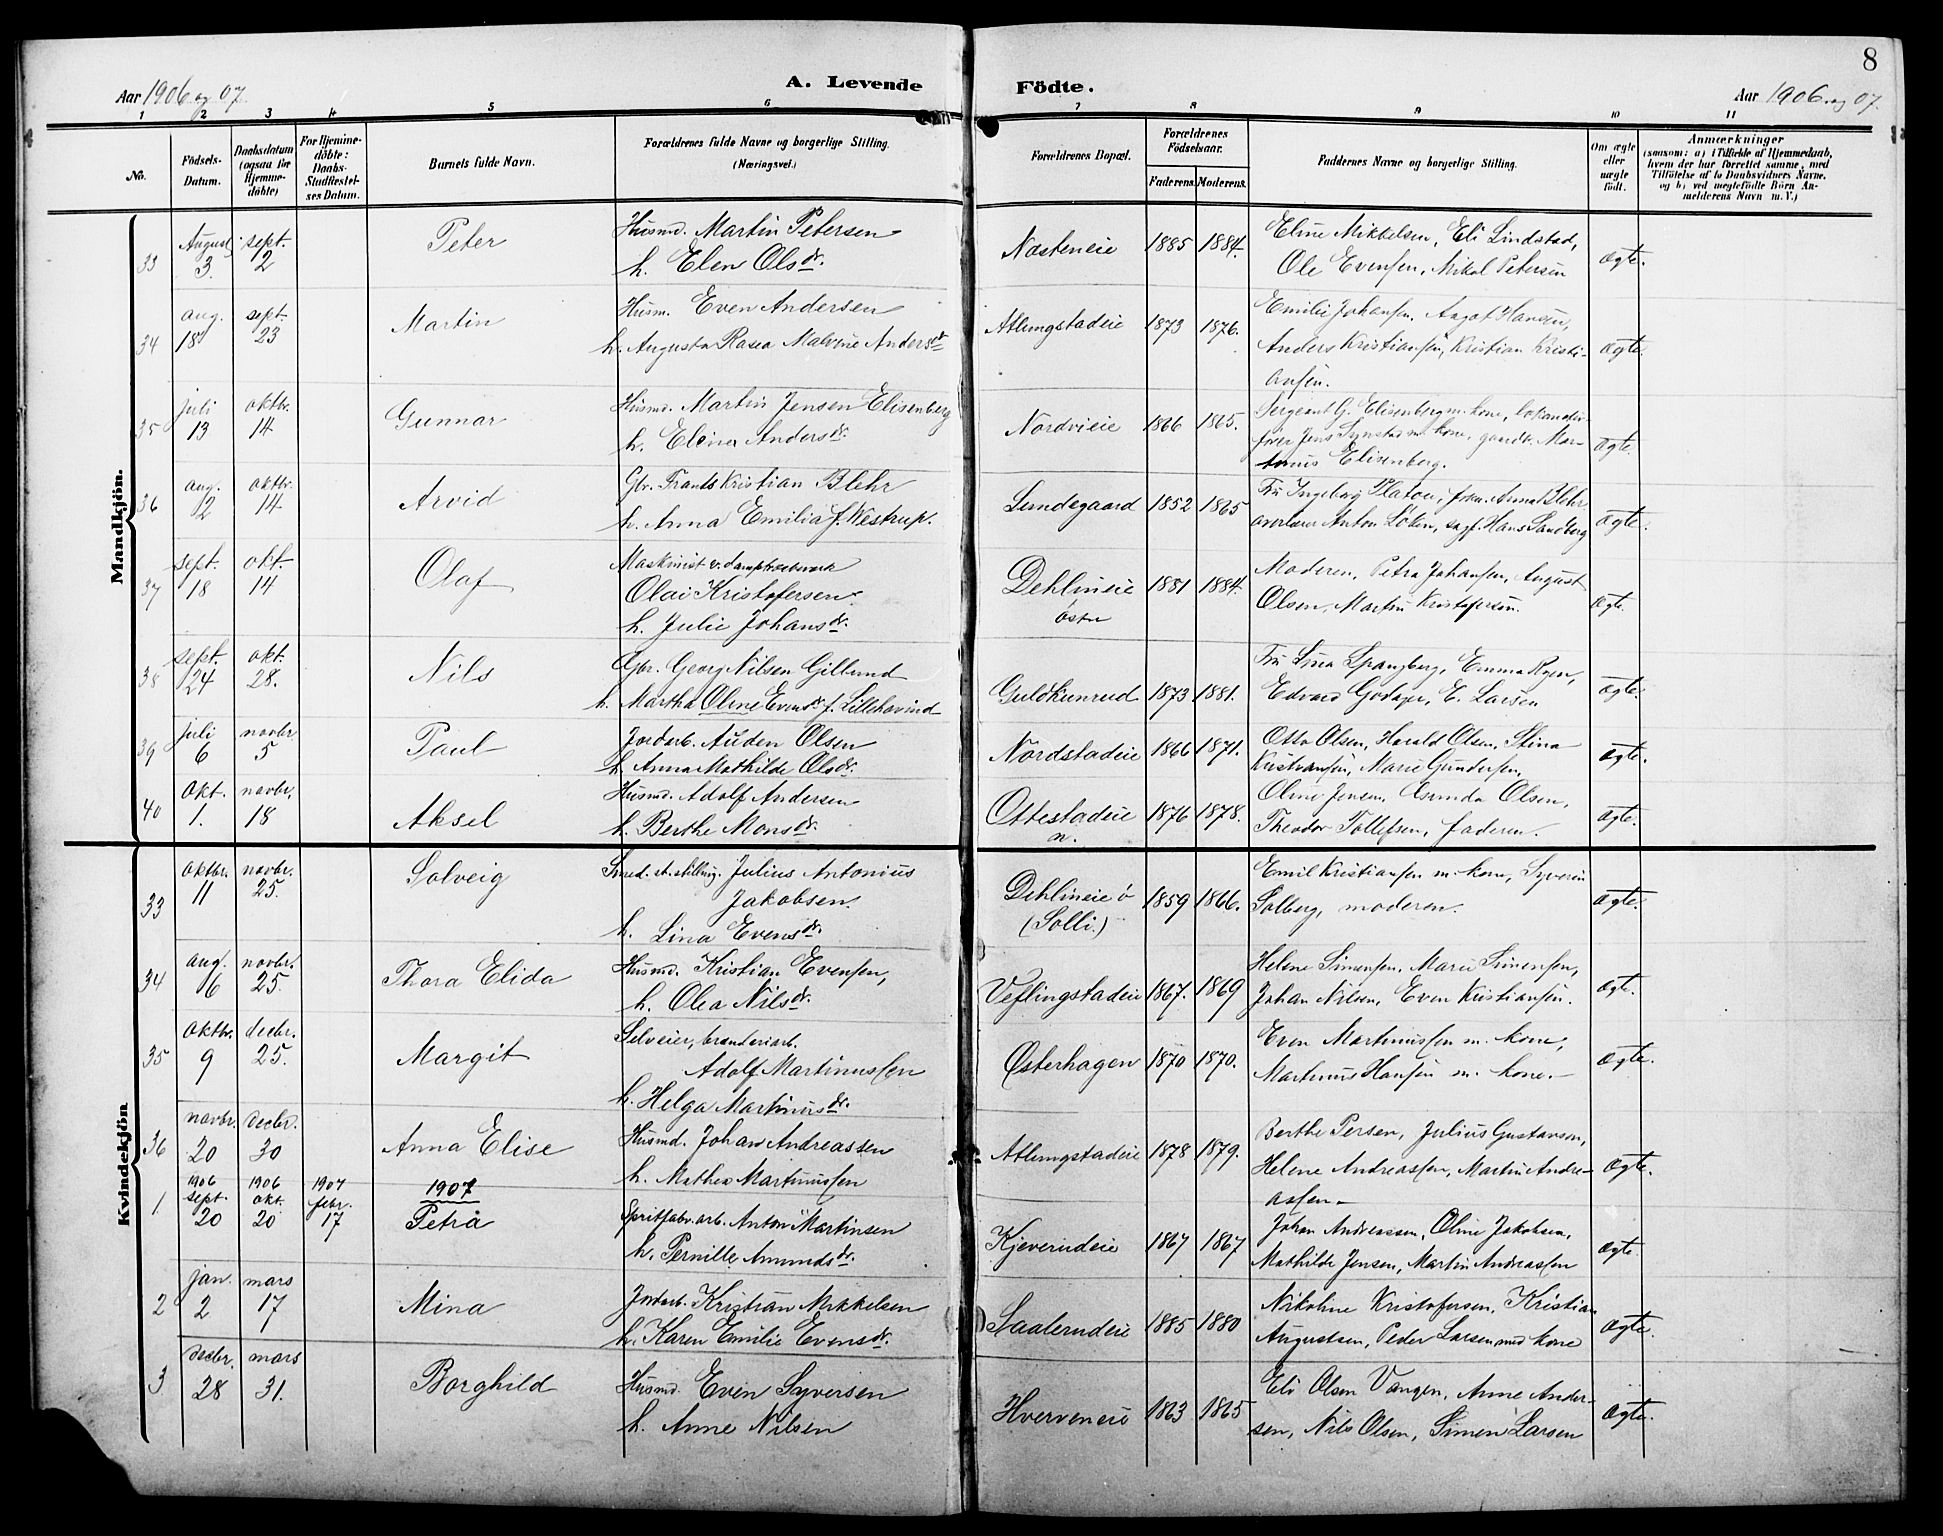 8
Aar 1906 og 07.
A. Levende Födte.
Aar 1906 og 07.
1 2 3 4 5 6 7 8 9 10 11
No.
Födsels-Datum.
Daabsdatum (ogsaa for Hjemme-döbte)
For Hjemme-döbte: Daabs-Stadfæstel-ses Datum.
Barnets fulde Navn.
Forældrenes fulde Navne og borgerlige Stilling.
(Næringsvei.)
Forældrenes Bopæl.
Forældrenes Födselsaar.
Faderens. Moderens.
Faddernes Navne og borgerlige Stilling.
Om ægte eller uægte födt.
Anmærkninger
(saasom: a) i Tilfælde af Hjemmedaab,
hvem der har forrettet samme, med
Tilföielse af to Daabsvidners Navne,
og b) ved uægtefödte Börn An-
melderens Navn m. V.)
Mandkjön.
33 August 3. sept. 2 Peter Husmd. Martin Petersen
h. Elen Olsdr. Næsteneie 1885 1884. Eline Mikkelsen, Eli Lindstad,
Ole Evensen, Mikal Petersen ægte.
34 aug. 18 sept. 23 Martin Husm. Even Andersen
h. Augusta Rasea Malvine Andersdt Atlungstadeie 1873 1876. Emilie Johansen, Aagot Hansen,
Anders Kristiansen, Kristian Kristi-
ansen. ægte.
35 juli 13 oktbr. 14 Gunnar Husmd. Martin Jensen Elisenberg
h. Elina Andersdr. Nordvieie 1866 1865. Sergeant G. Elisenberg m. kone,
Jens Synstad m. kone, gaardbr. Mar-
tinus Elisenberg. ægte.
36 aug. 12 oktbr. 14 Arvid Gbr. Frants Kristian Blehr
h. Anna Emilia f. Westrup. Lundegaard 1852 1865 Fru Ingeborg Platou, frkn. Anna Blehr,
Anton Løken, sagf. Hans Sandberg ægte.
37 sept. 18 okt. 14 Olaf Maskinist v.
Olai Kristofersen
h. Julie Johansdr. Dehlineie
østre 1881 1884. Moderen, Petra Johansen, August
Olsen, Martin Kristofersen. ægte.
38 sept. 24 okt. 28. Nils Gbr. Georg Nilsen Gillund
h. Martha Oline Evensdr f. Lillehovind Guldkunrud 1873 1881. Fru Lina Spangberg, Emma Ryen,
Edvard Godager, E. Larsen ægte.
39 juli 6 novbr. 5 Paul Jordarb. Auden Olsen
h. Anna Mathilde Olsdr. Nordstadeie 1866 1871. Otto Olsen, Harald Olsen, Stina
Kristiansen, Marie Gundersen. ægte.
40 Okt. 1. novbr. 18 Aksel Husmd. Adolf Andersen
h. Berthe Monsdr. Ottestadeie
n. 1876 1878. Oline Jensen, Olsen,
Theodor Tollefsen, faderen. ægte.
Kvindekjön
33 oktbr. 11 novbr. 25. Solveig Smed. st. stilling. Julius Antonius
Jakobsen.
h. Lina Evensdr. Dehlineie ø
(Solli.) 1859 1866. Emil Kristiansen m. kone, Syverin
Solberg, moderen. ægte.
34 aug. 16 novbr. 25. Thora Elida Husmd. Kristian Evensen,
h. Olea Nilsdr. Veflingstadeie 1867. 1869 Helene Simensen, Marie Simensen,
Johan Nilsen, Even Kristiansen. ægte.
35 oktbr. 9 decbr. 25. Margit Selveier, brænderiarb.
Adolf Martinussen
h. Helga Martinusdr. Østerhagen 1870 1870. Even Martinussen m. kone,
Martinus Hansen m. kone. ægte.
36 novbr. 20 decbr. 30 Anna Elise Husmd. Johan Andreassen
h. Mathea Martinussen Atlungstadeie 1878 1879. Berthe Persen, Julius Gustavsen,
Helene Andreassen, Martin Andre-
assen. ægte.
1907
1 1906 sept. 20 1906 okt. 20 1907 febr. 17 Petra Spritfabr. arb. Anton Martinsen
h. Pernille Amundsdr. Kjeverudeie 1867 1867 Johan Andreassen, Oline Jakobsen,
Mathilde Jensen, Martin Andreassen ægte.
2 jan. 2 mars 17 Mina Jordarb. Kristian Mikkelsen
h. Karen Emilie Evensdr. Saalerudeie 1885 1880 Nikoline Kristofersen, Kristian
Augustsen, Peder Larsen med kone ægte.
3 decbr. 28 mars 31. Borghild Husmd. Even Syversen
h. Anne Nilsen Hverveneie 1863 1865 Eli Olsen Vangen, Anne Ander-
sen, Nils Olsen, Simen Larsen ægte.